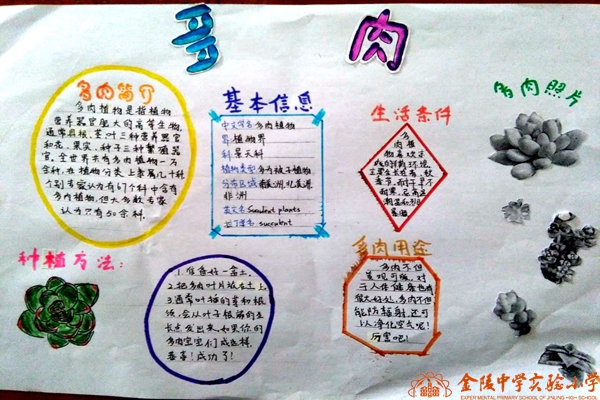 多肉
多肉简介
多肉植物是指植物
营养器官肥大的高等生物,
通常具根、茎、叶三种营养器官
和花、果实、种子三种繁殖器
官。全世界共有多肉植物一万
余种,在植物分类上隶属几十科
个别专家认为有67个科中含有
多肉植物,但大多数专家
认为只有50余科。
基本信息
中文学名 多肉植物
界 植物界
科 景天科
植物类型 多为被子植物
分布区域 南美洲、北美洲、
非洲
英文名 Succulent plants
拉丁学名 succulent
生活条件
多
肉植
物喜欢
多肉照片
种植方法:
1.准备好一盆土。
2.把多肉叶片放在土上
3.通常叶插的芽和根
会从叶子根部的生
长点发出来,如果你的
多肉宝宝们成这样,
恭喜!成功了!
多肉用途
多肉不但
美观可爱,对
于人体健康也有
很大好处,多肉不但
能防辐射,还可
以净化空气呢!
厉害吧!
金陵中学实验小学
EXPERIMENTAL PRIMARY SCHOOL OF JINLING HIGH SCHOOL